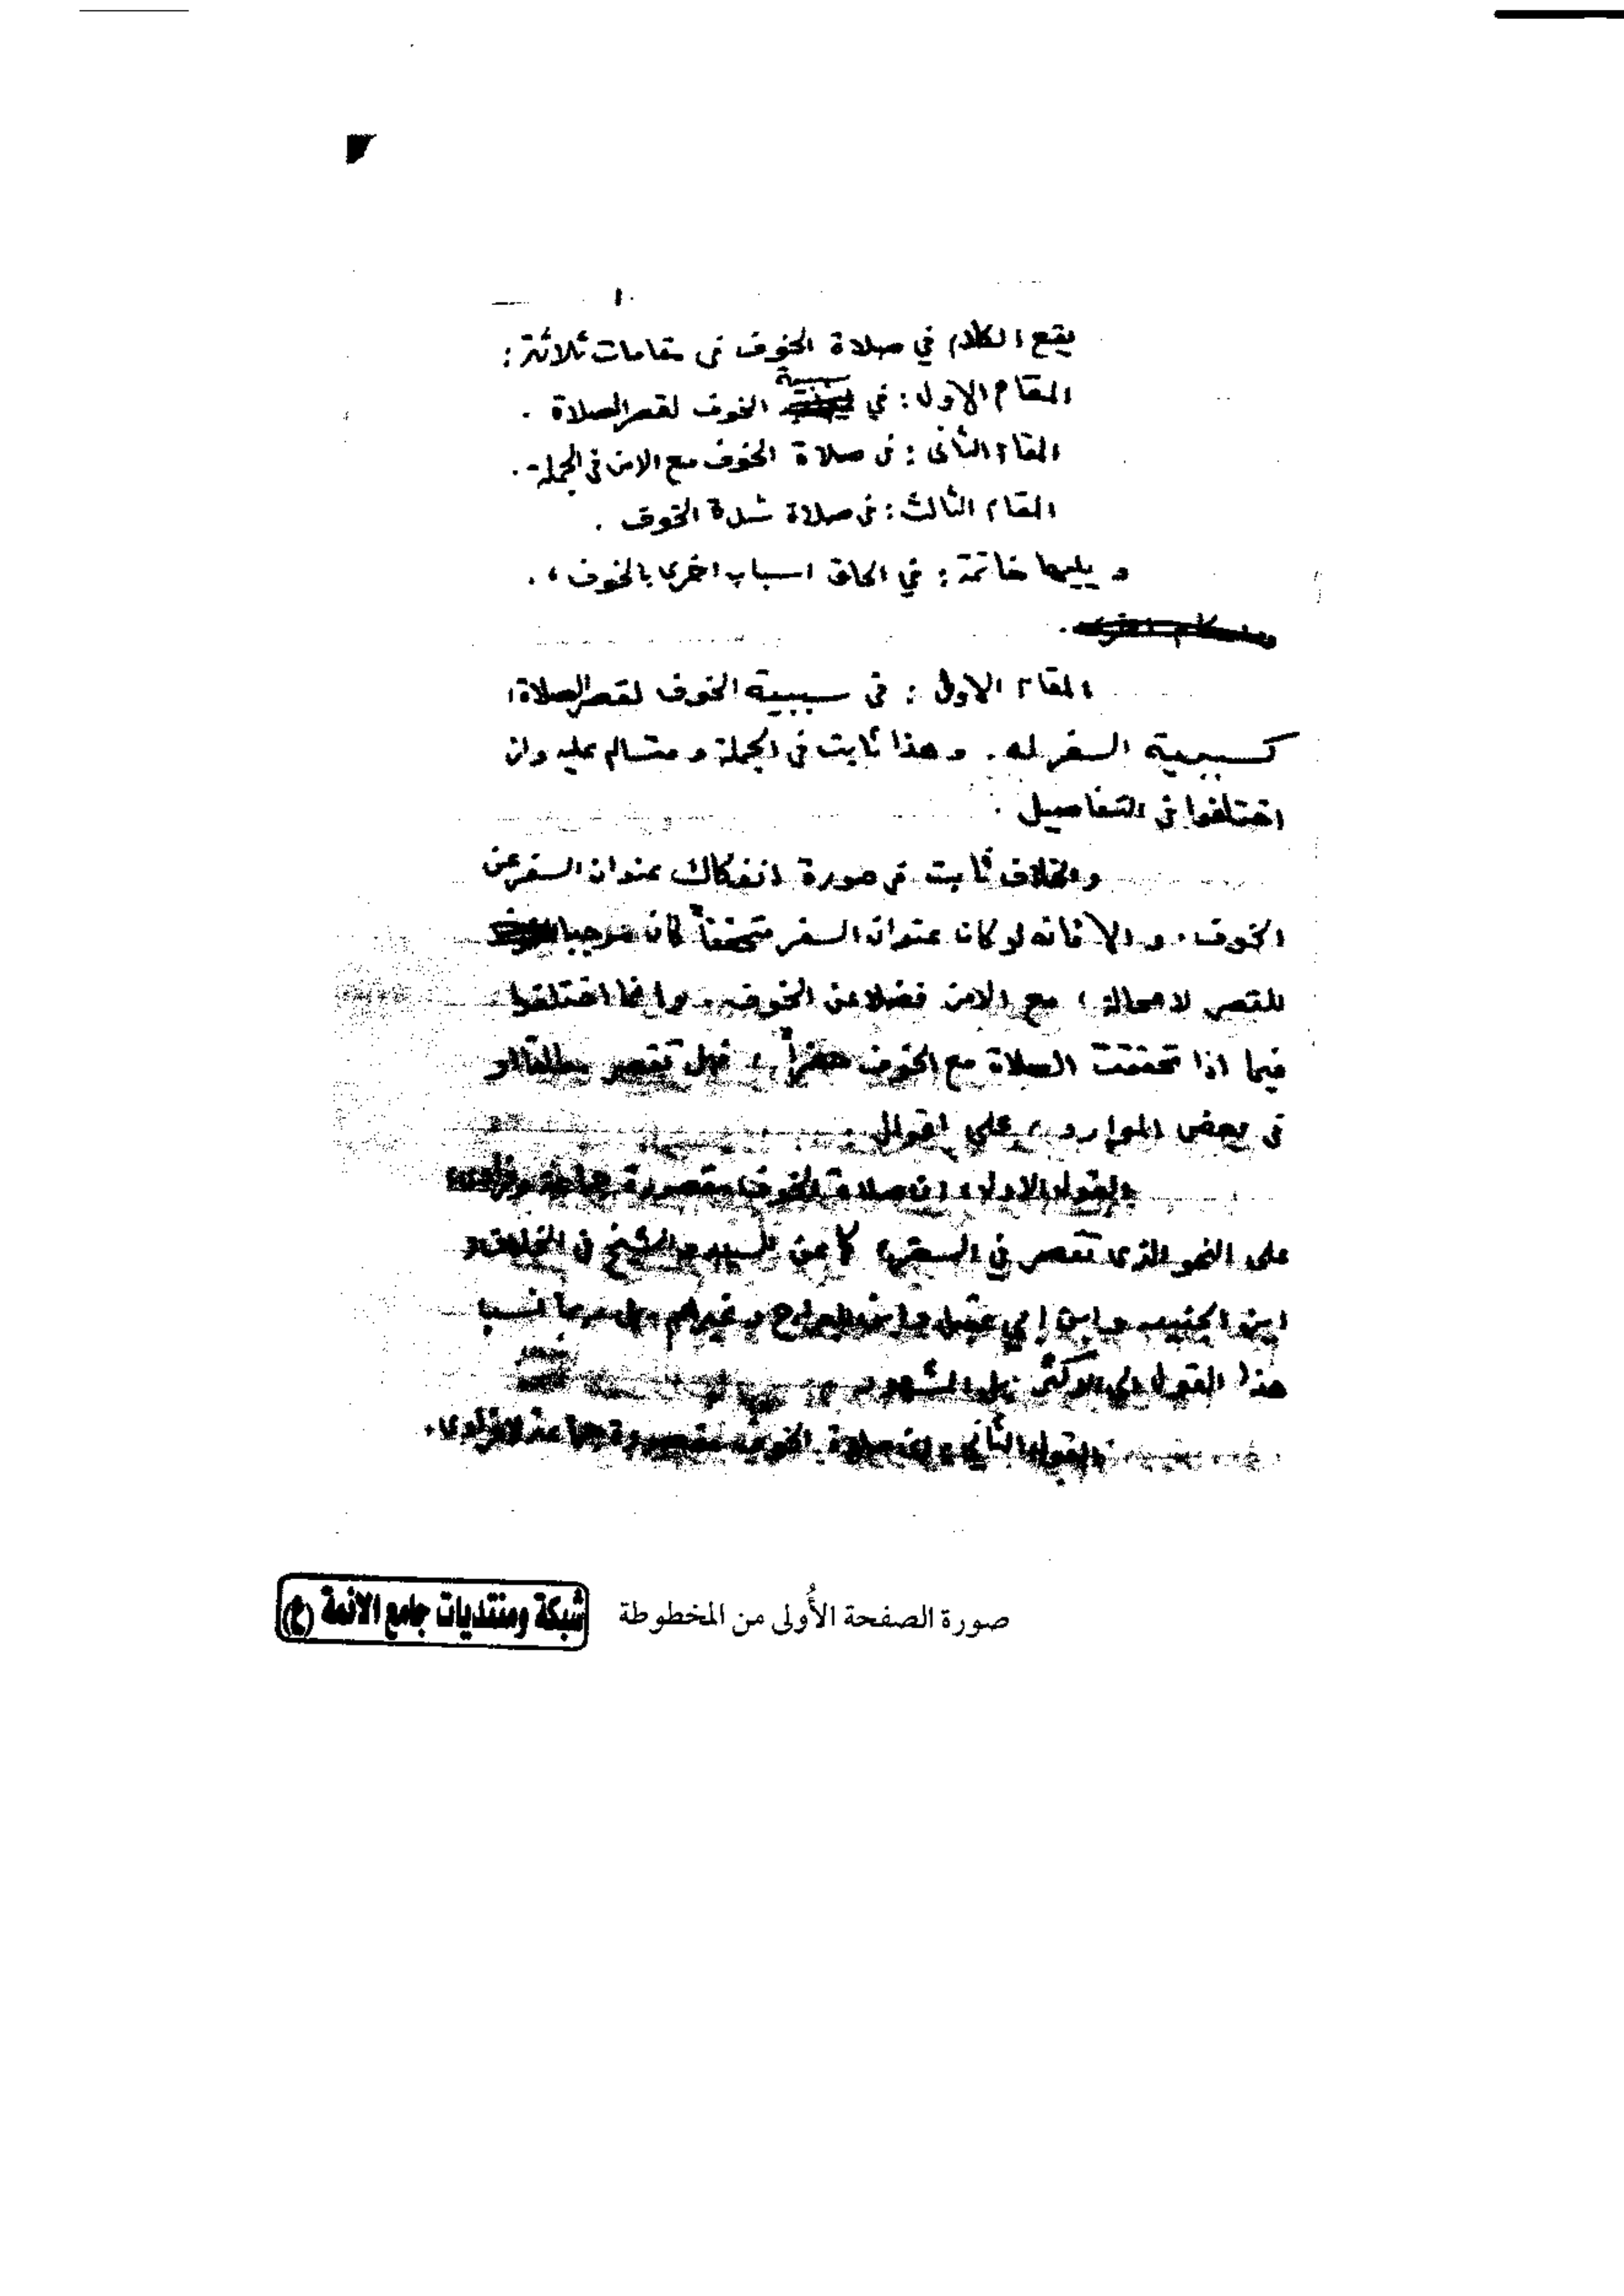 ١
يقع الكلام في صلاة الخوف في مقامات ثلاثة :
المقام الاول : في سببية الخوف لقصر الصلاة .
المقام الثاني : في صلاة الخوف مع الامن في الجملة .
المقام الثالث : في صلاة شدة الخوف .
و يليها خاتمة : في الحاق اسباب اخرى بالخوف ، .
المقام الاول : في سببية الخوف لقصر الصلاة ،
كسببية السفر له . و هذا ثابت في الجملة و متسالم عليه وان
اختلفوا في التفاصيل .
والخلاف ثابت في صورة انفكاك عنوان السفر عن
الخوف . و الا فانه لو كان عنوان السفر متحققاً كان موجبا
للقصر لا محالة ، مع الامن فضلا عن الخوف . وانما اختلفوا
فيما اذا تحققت الصلاة مع الخوف حضراً ، فهل تقصر مطلقا او
في بعض الموارد ، على اقوال .
القول الاول : ان صلاة الخوف مقصورة جماعة وفرادى
على النحو الذي تقصر في السفر ، كما عن السيد والشيخ في الخلاف و
ابن الجنيد و ابن ابي عقيل و ابن البراج و غيرهم . بل ربما نسب
هذا القول الى الاكثر بل المشهور
القول الثاني : ان صلاة الخوف مقصورة جماعة لا فرادى .
صورة الصفحة الأُولى من المخطوطة
شبكة ومنتديات جامع الائمة (ع)